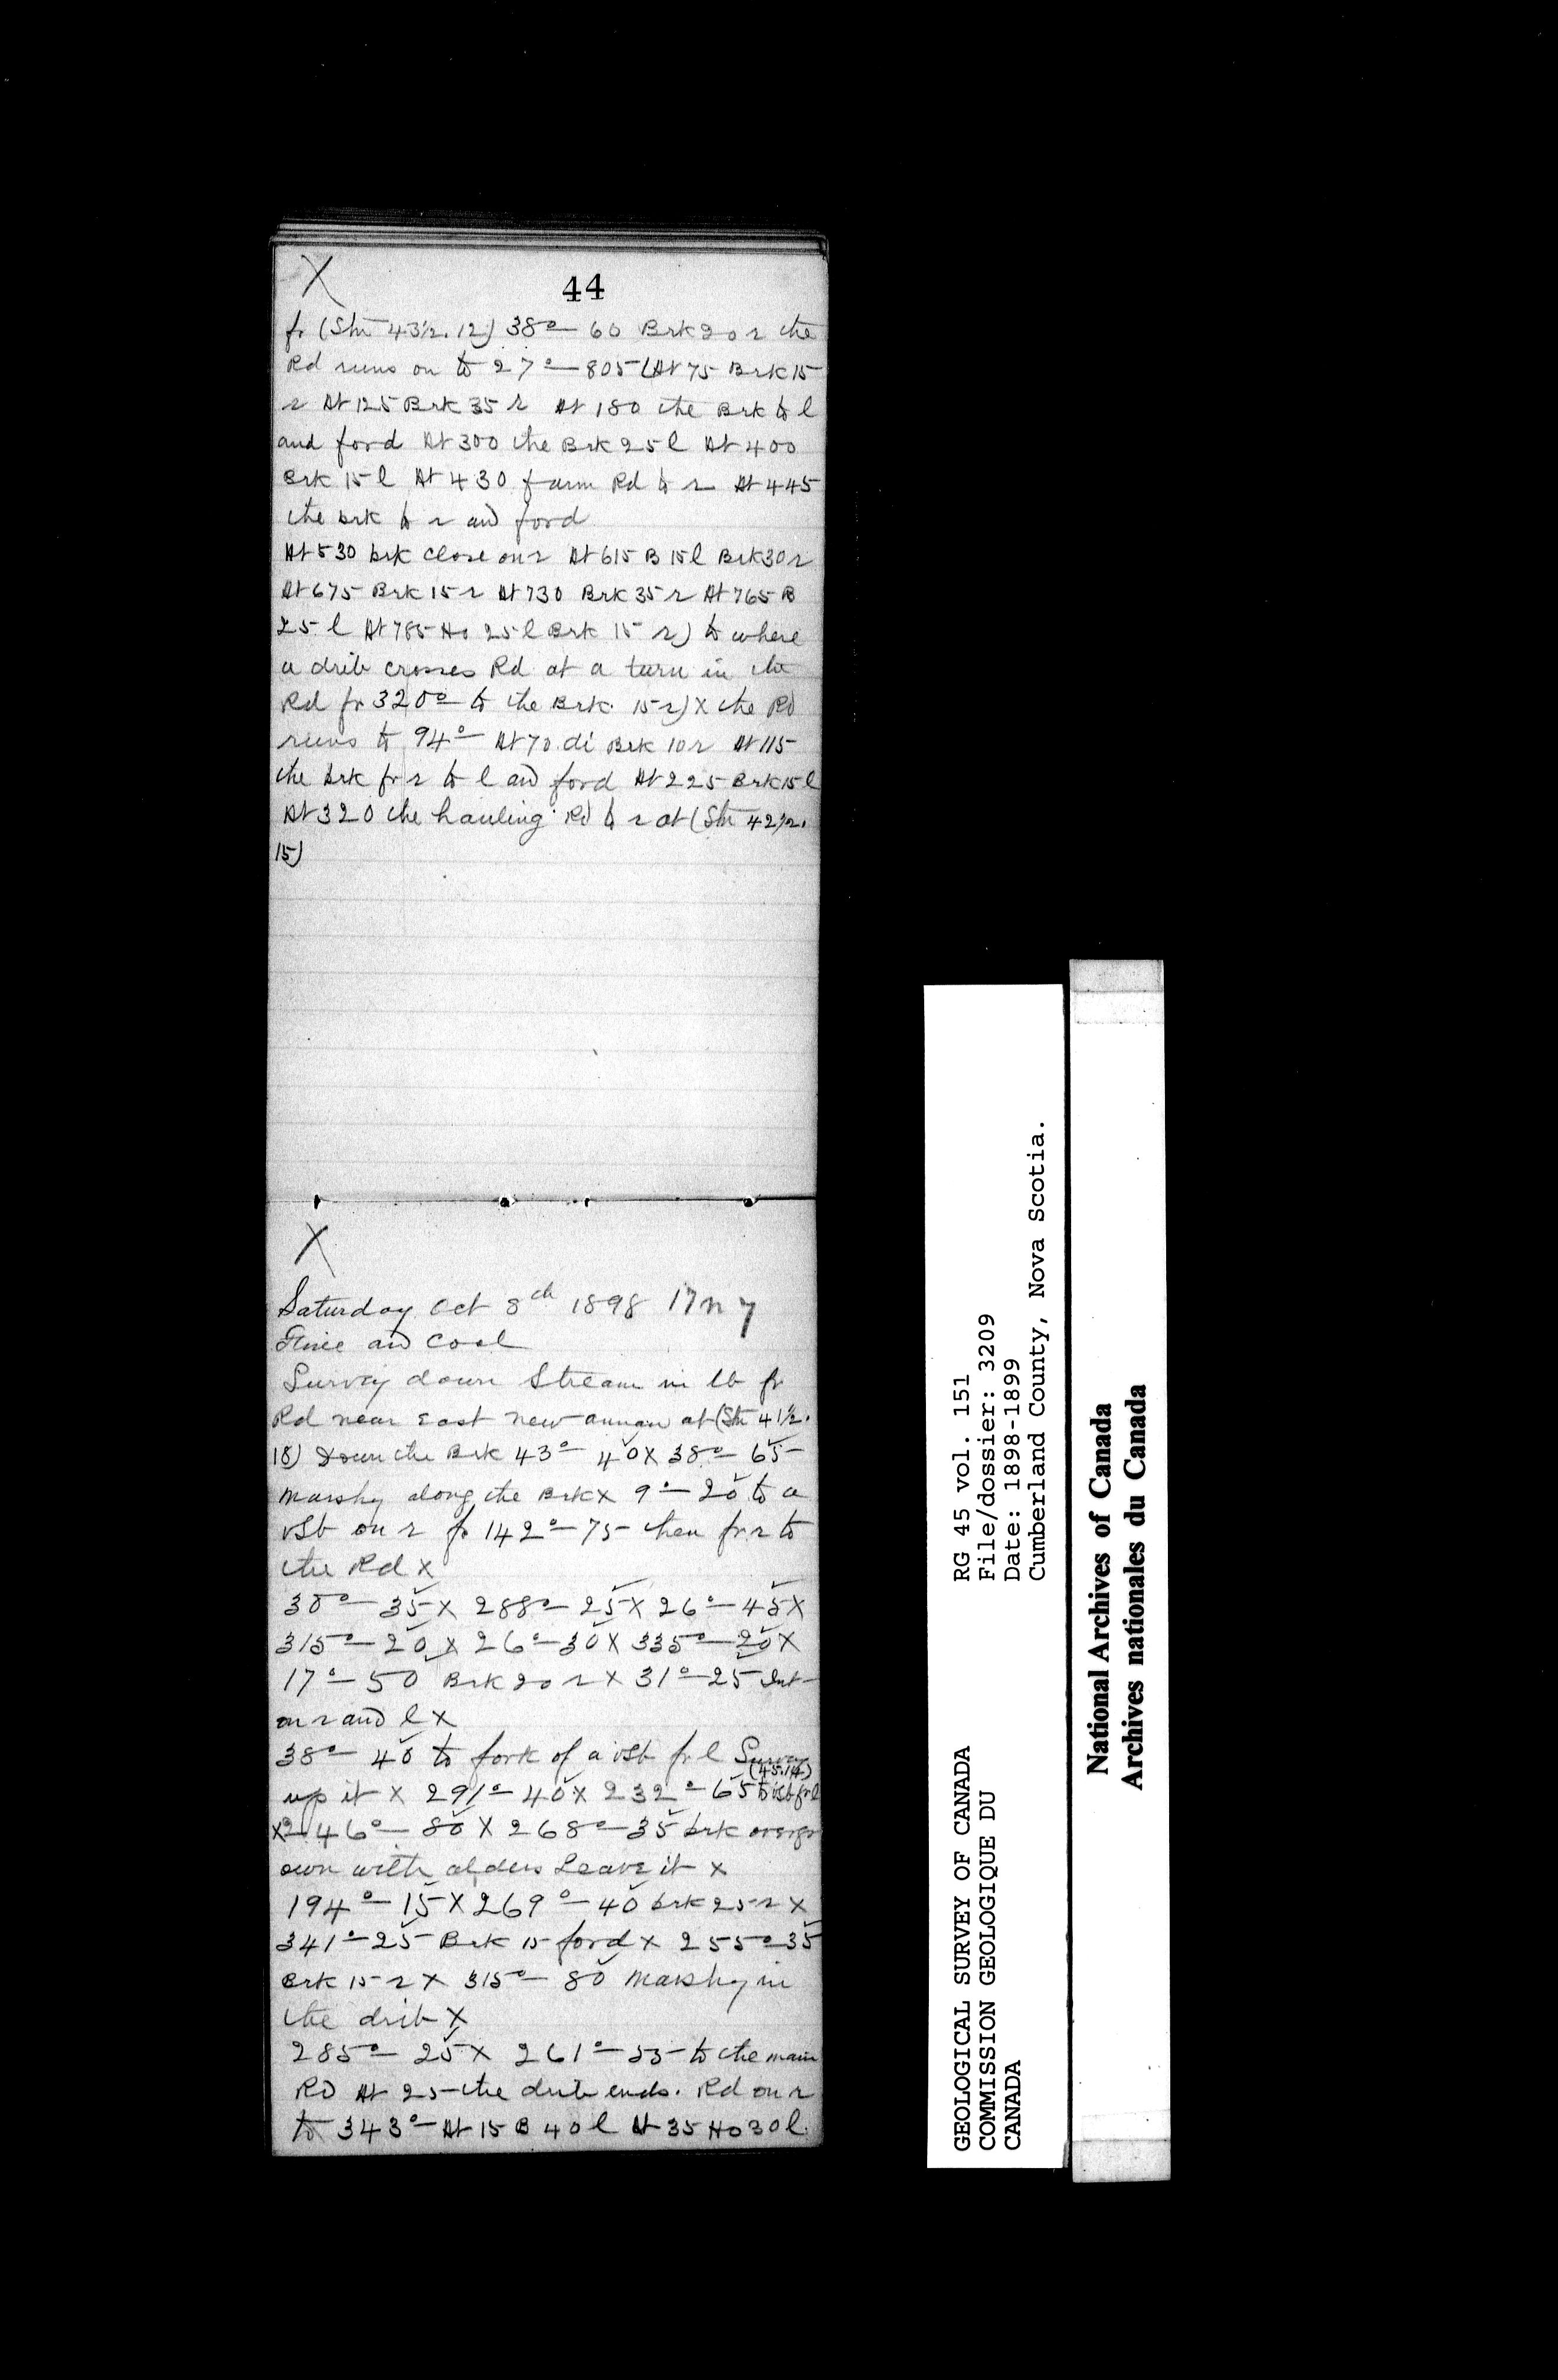 X
44
fr (Stn 43½.12) 38°— 60 Brk 20 r the
Rd runs on to 27°— 805 (At 75 Brk 15
r At 125 Brk 35 r At 180 the Brk to l
and ford At 300 the Brk 25 l At 400
Brk 15 l At 430 farm Rd to r At 445
the brk to r and ford
At 530 brk close on r At 615 B 15 l Brk 30 r
At 675 Brk 15 r At 730 Brk 35 r At 765 B
25 l At 785 Ho 25 l Brk 15 r) to where
a drib crosses Rd at a turn in the
Rd fr 320°— to the Brk. 15 r) X the Rd
runs to 94°— At 70 di Brk 10 r At 115
the brk fr r to l and ford At 225 Brk 15 l
At 320 the hauling Rd to r at (Stn 42½.
15)
X
Saturday Oct 8th 1898 17 n 7
Fine and cool
Survey down Stream in lb fr
Rd near East new annan at (Stn 41½.
18) Down the Brk 43°— 40 X 38°— 65
Marshy along the Brk X 9°— 20 to a
vsb on r fr 142°— 75 then fr r to
the Rd X
30°— 35 X 288°— 25 X 26°— 45 X
315°— 20 X 26°— 30 X 335°— 20 X
17°— 50 Brk 20 r X 31°— 25 Int
on r and l X
38°— 40 to fork of a vsb fr l Survey
(45.14)
up it X 291°— 40 X 232°— 65 to vsb fr l
X 246°— 80 X 268°— 35 brk overgr
own with alders Leave it X
194°— 15 X 269°— 40 brk 25 r X
341°— 25 Brk 15 ford X 255°— 35
Brk 15 r X 315°— 80 Marshy in
the drib X
285°— 25 X 261°— 55 to the main
Rd At 25 the drib ends. Rd on r
to 343°— At 15 B 40 l At 35 Ho 30 l
GEOLOGICAL SURVEY OF CANADA
COMMISSION GEOLOGIQUE DU
CANADA
RG 45 vol. 151
File/dossier: 3209
Date: 1898-1899
Cumberland County, Nova Scotia.
National Archives of Canada
Archives nationales du Canada